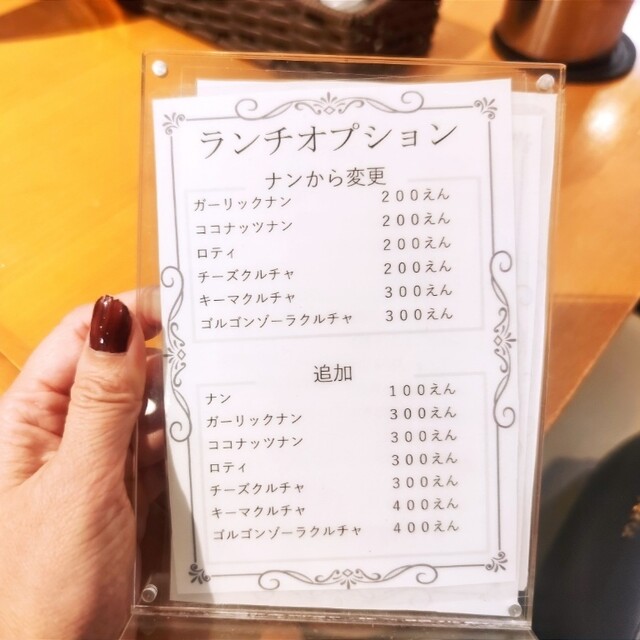 ランチオプション
ナンから変更
ガーリックナン 200えん
ココナッツナン 200えん
ロティ 200えん
チーズクルチャ 200えん
キーマクルチャ 300えん
ゴルゴンゾーラクルチャ 300えん
追加
ナン 100えん
ガーリックナン 300えん
ココナッツナン 300えん
ロティ 300えん
チーズクルチャ 300えん
キーマクルチャ 400えん
ゴルゴンゾーラクルチャ 400えん